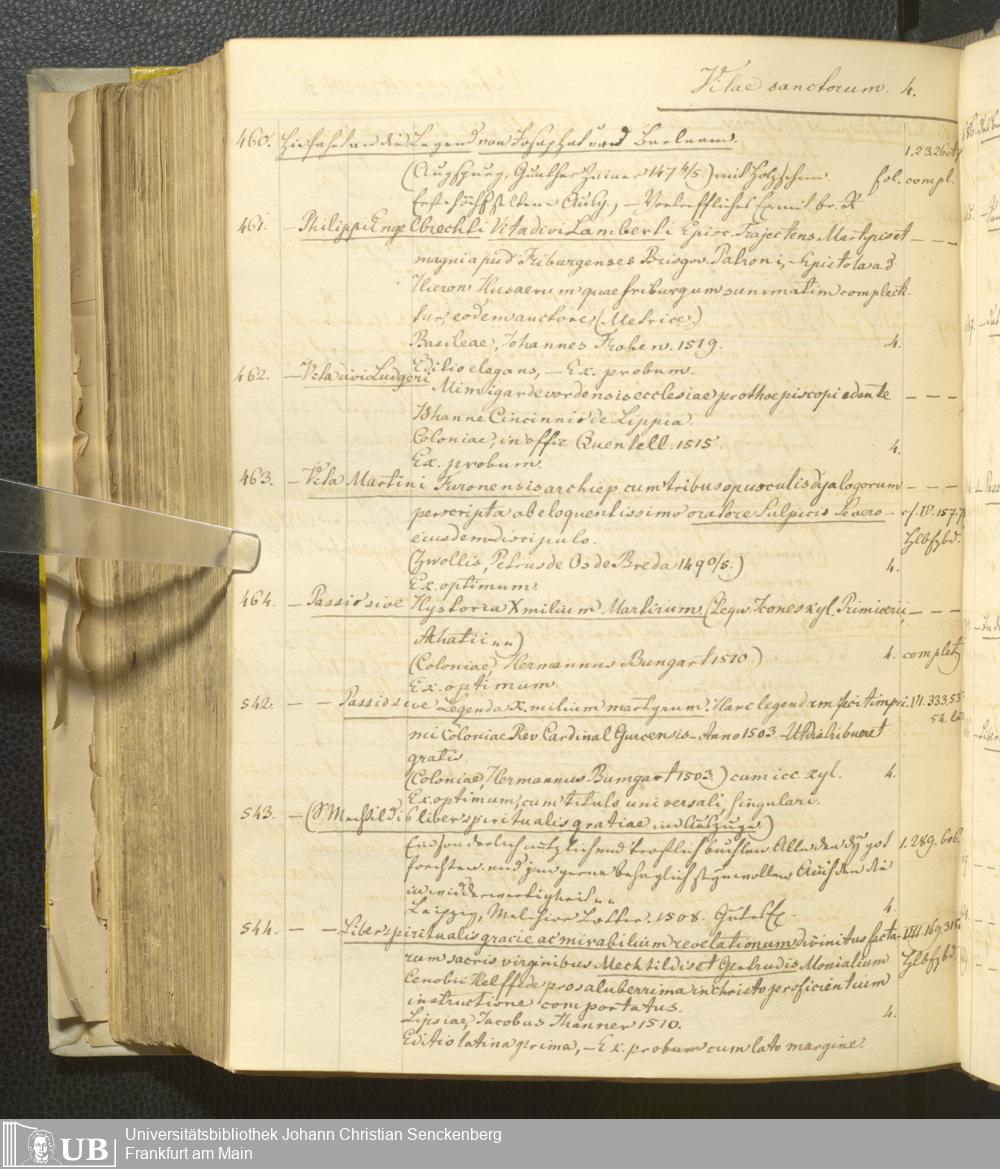 Vitae sanctorum. 4.
460. Hie fahet an die Legend von Josaphat und Barlaam.
(Augspurg, Gunther Zainer 147 4/5.) mit Holzschnn. fol. compl.
Erste höchst seltene Ausg., – Vortreffliches Exempl. br. R
461. – Philippi Engelbrechti Vita divi Lamberti Episc. Trajectens. Martyris et – – –
magni apud Friburgenses Brisgov. Patroni, – Epistola ad
Hieron. Husaerum quae friburgum summatim complecti-
tur, eodem auctore, (Metrice.)
Basileae, Johannes Froben. 1519. 4.
Editio elegans, – Ex. probum.
462. – Vita divi Ludgeri
Mimigardevordensis ecclesiae prothoepiscopi edente – – –
Johanne Cincinnio de Lippia.
Coloniae, in offic Quentell. 1515. 4.
Ex. probum.
463. – Vita Martini Turonensis archiep cum tribus opusculis dyalogorum – – –
perscripta ab eloquentissimo oratore Sulpicio Severo – cf. IV. 157.
eiusdem discipulo. Hlbfzbd.
(Zwollis, Petrus de Os de Breda 1490/5.) 4.
Ex. optimum.
464. – Passio sive Hystoria X milium Martirum. (Sequ. Icones xyl. Primicerii, – – –
Athatii „ „)
(Coloniae, Hermannus Bungart 1510.) 4. complet
Ex. optimum.
542. – – Passio sive Legenda X milium martyrum. Hanc legendam fecit impri- VI. 333.55
mi Coloniae Rev. Cardinal Gurcensis – Anno 1503 – Ut distribueret
gratis.
(Coloniae, Hermannus Bumgart 1503.) cum icc. xyl. 4.
Ex. optimum, cum titulo universali, singulari.
543. – (S. Mechtildis liber spiritualis gratiae im Auszuge.)
Ein sonderlich nutzlich und trostlich buchlen Allen den dy got 1. 289. 606.
forchten. und jm gerne behaglich seyn wollen Auch den die
in widderwertigheit „ „
Leipzig, Melchior Lotter. 1508. Gutes Ex. 4.
544. – – Liber spiritualis gracie ac mirabilium revelationum divinitus facta-
rum sacris virginibus Mechtildis et Gertrudis Monialium Hlbfzbd.
Cenobii Helffede pro saluberrima in christo proficientium
instructione comportatus. 4.
Lipsiae, Jacobus Thanner 1510.
Editio latina prima, – Ex. probum cum lato margine.
UB
Universitätsbibliothek Johann Christian Senckenberg
Frankfurt am Main